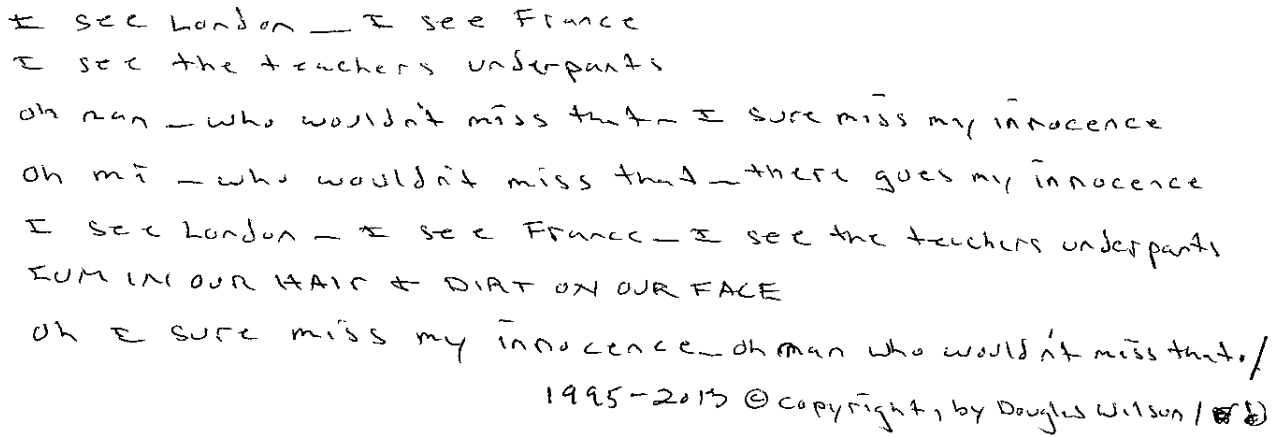 I see London — I see France
I see the teachers underpants
oh man — who wouldn't miss that — I sure miss my innocence
oh mi — who wouldn't miss that — there goes my innocence
I see London — I see France — I see the teachers underpants
GUM IN OUR HAIr & DIRT ON OUR FACE
oh I sure miss my innocence — oh man who wouldn't miss that. /
1995-2013 © copyright, by Douglas Wilson /